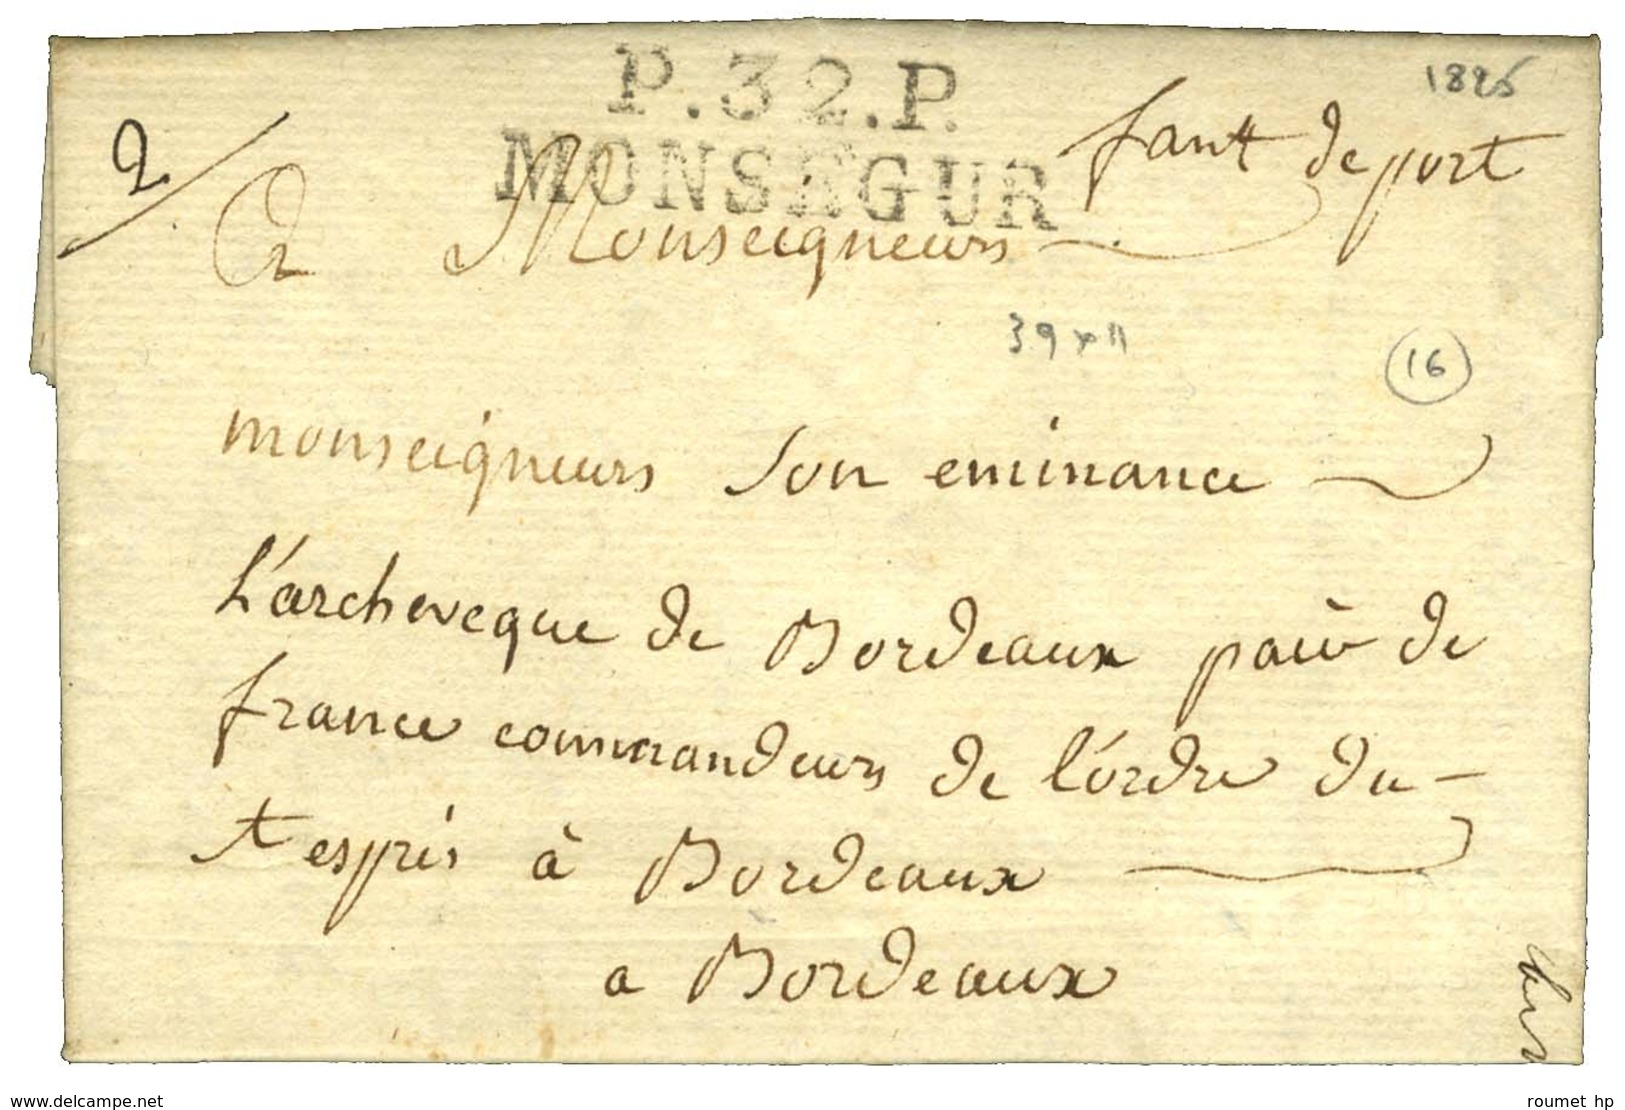 P.32.P.
MONSEGUR
1826
fant de port
2
2 Monseigneurs
39 x 11
16
monseigneurs son eminance
L'archeveque de Bordeaux pair de
france commandeurs de l'ordre du
t espris à Bordeaux
a Bordeaux
www.delcampe.net
roumet hp